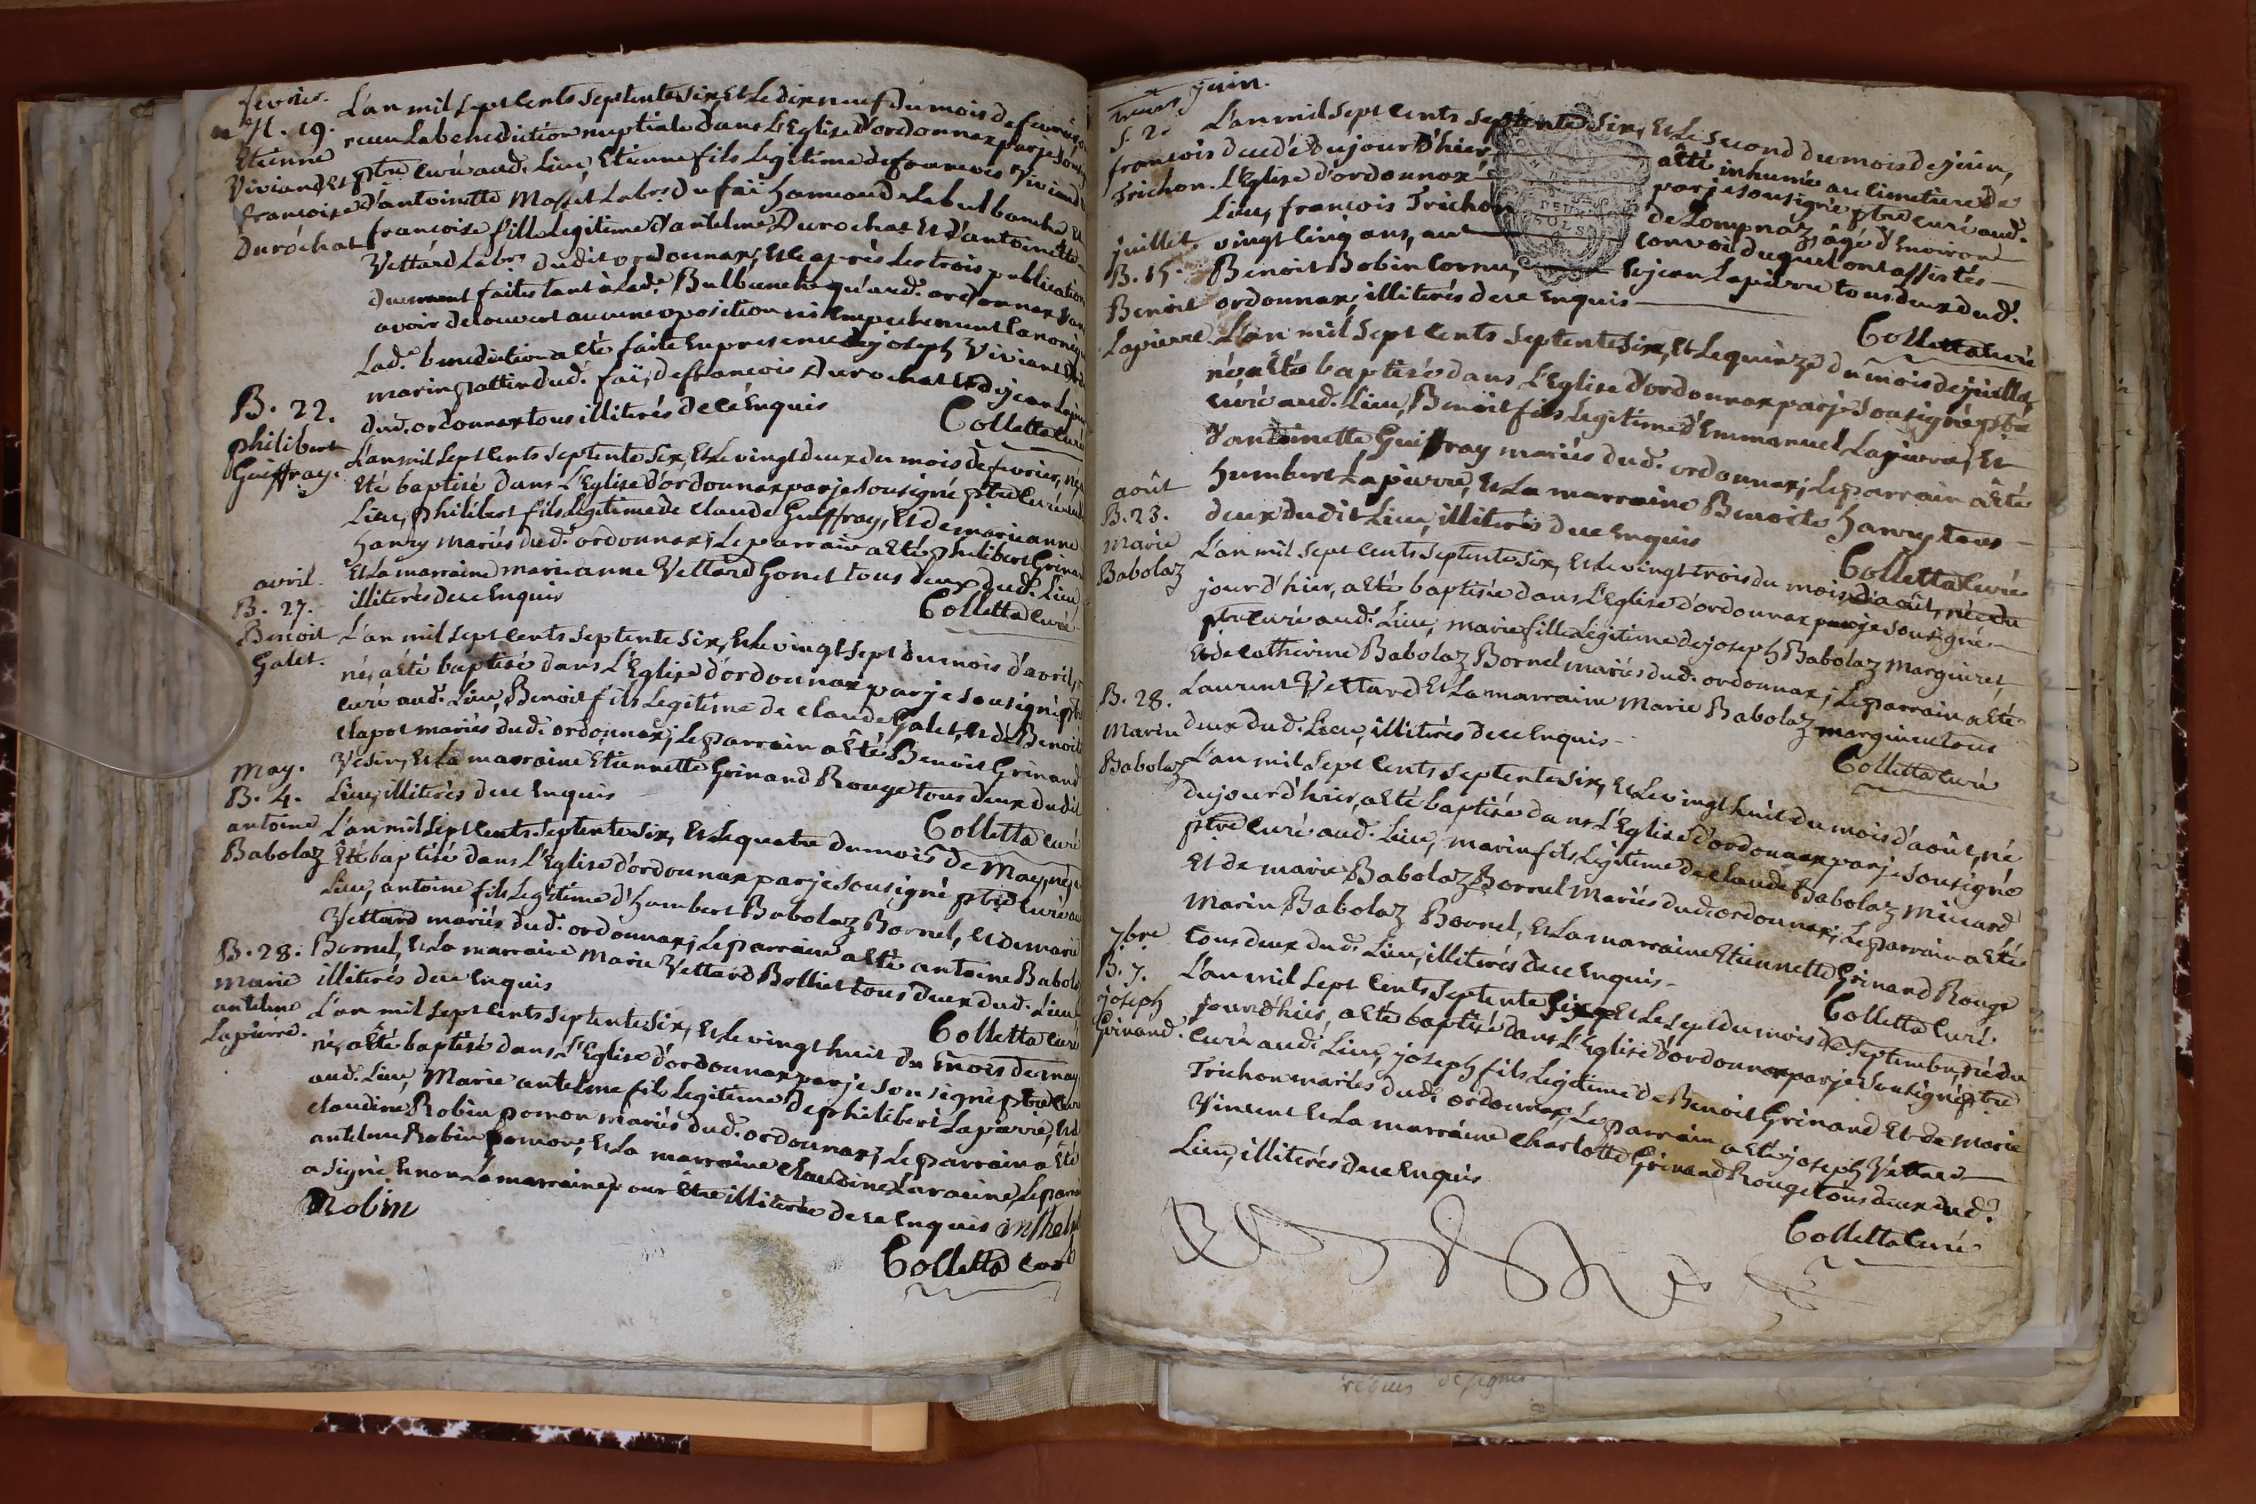 fevrier.
M. 19.
Etienne
Viviand Et
françoise
Durochat
L'an mil sept cents septente six, Et Le dix neuf du mois de fevrier,
receu La benediction nuptiale dans L'Eglise d'ordonnax par je sous
ptre curé aud. Lieu, Etienne fils Legitime de francois Viviand
d'antoinette Mosset Labrs. du faï hameau de La bulbanche Et
françoise fille Legitime d'antelme Durochat Et d'antoinette
Vettard Labrs. dudit ordonnax, Et ce après Les trois publications
duement faites tant à Lad. Bulbanche qu'aud. ordonnax sans
avoir decouvert aucune oposition ni Empechement canonique
Lad. benediction a Eté faite En presence de joseph Viviand
marin pattin dud. faï, de francois Durochat Et de jean Lapierre
dud. ordonnax tous illiterés de ce Enquis
Colletta curé
B. 22.
philibert
Guiffray.
L'an mil sept cents septente six, Et Le vingt deux du mois de fevrier, né,
Eté baptisé dans L'Eglise d'ordonnax par je sousigné ptre curé aud.
Lieu, philibert fils Legitime de claude Guiffray, Et de marie anne
hanry mariés dud. ordonnax; Le parrain a Eté philibert Grinand
Et La marraine marie anne Vettard Gonet tous deux dud. Lieu,
illiterés de ce Enquis
Colletta curé
avril.
B. 27.
Benoit
Galet.
L'an mil sept cents septente six, Et Le vingt sept du mois d'avril,
né, a Eté baptisé dans L'Eglise d'ordonnax par je sousigné ptre
curé aud. Lieu, Benoit fils Legitime de claude Galet, Et de Benoite
clapot mariés dud. ordonnax; Le parrain a Eté Benoit Grinand
Vesin, Et La marraine Etiennette Grinand Rouge tous deux dudit
Lieu, illiterés de ce Enquis
Colletta curé
May.
B. 4.
antoine
Babolaz
L'an mil sept cents septente six, Et Le quatre du mois de May, né,
Eté baptisé dans L'Eglise d'ordonnax par je sousigné ptre curé aud.
Lieu, antoine fils Legitime d'humbert Babolaz Bornel, Et de marie
Vettard mariés dud. ordonnax; Le parrain a Eté antoine Babolaz
Bornel, Et La marraine Marie Vettard Bolliet tous deux dud. Lieu
illiterés de ce Enquis
Colletta curé
B. 28.
Marie
antelme
Lapierre.
L'an mil sept cents septente six, Et Le vingt huit du mois de may,
né, a Eté baptisé dans L'Eglise d'ordonnax par je sousigné ptre curé
aud. Lieu, Marie antelme fils Legitime de philibert Lapierre, Et de
claudine Robin pomon mariés dud. ordonnax; Le parrain a Eté
antelme Robin pomon, Et La marraine claudine Laracine, Le parrain
a signé Et non La marraine pour Etre illiterée de ce Enquis anthelme
Robin
Colletta curé
juin.
S. 2.
françois
Trichon.
L'an mil sept cents septente six, Et Le second du mois de juin,
decedé du jour d'hier a Eté inhumé au cimetiere de
L'Eglise d'ordonnax par je sousigné ptre curé aud.
Lieu, françois Trichon de Lompnaz, âgé d'Environ
vingt cinq ans, au convoi duquel ont assistés
Benoit Bobin cornu, Et jean Lapierre tous deux dud.
ordonnax, illiterés de ce Enquis
Colletta curé
juillet.
B. 15.
Benoit
Lapierre
L'an mil sept cents septente six, Et Le quinze du mois de juillet
né, a Eté baptisé dans L'Eglise d'ordonnax par je sousigné ptre
curé aud. Lieu, Benoit fils Legitime d'Emmanuel Lapierre, Et
d'antoinette Guiffray mariés dud. ordonnax; Le parrain a Eté
humbert Lapierre, Et La marraine Benoite hanry tous
deux dudit Lieu, illiterés de ce Enquis
Colletta curé
août
B. 23.
Marie
Babolaz
L'an mil sept cents septente six, Et Le vingt trois du mois d'août, née du
jour d'hier, a Eté baptisée dans L'Eglise d'ordonnax par je sousigné
ptre curé aud. Lieu, marie fille Legitime de joseph Babolaz Marguiret,
Et de catherine Babolaz Bornel mariés dud. ordonnax; Le parrain a Eté
Laurent Vettard Et La marraine Marie Babolaz marguiret tous
deux dud. Lieu, illiterés de ce Enquis
Colletta curé
B. 28.
Marin
Babolaz
L'an mil sept cents septente six, Et Le vingt huit du mois d'août, né
du jour d'hier, a Eté baptisé dans L'Eglise d'ordonnax par je sousigné
ptre curé aud. Lieu, marin fils Legitime de claude Babolaz Micard
Et de marie Babolaz Bornel Mariés dud. ordonnax; Le parrain a Eté
Marin Babolaz Bornel, Et La marraine Etiennette Grinand Rouge
tous deux dud. Lieu, illiterés de ce Enquis
Colletta curé
7bre
B. 7.
joseph
Grinand.
L'an mil sept cents septente six, Et Le sept du mois de septembre, né du
jour d'hier, a Eté baptisé dans L'Eglise d'ordonnax par je sousigné ptre
curé aud. Lieu, joseph fils Legitime de Benoit Grinand Et de Marie
Trichon mariés dud. ordonnax; Le parrain a Eté joseph Vettard
Vincent Et La marraine charlotte Grinand Rouge tous deux dud.
Lieu, illiterés de ce Enquis
Colletta curé